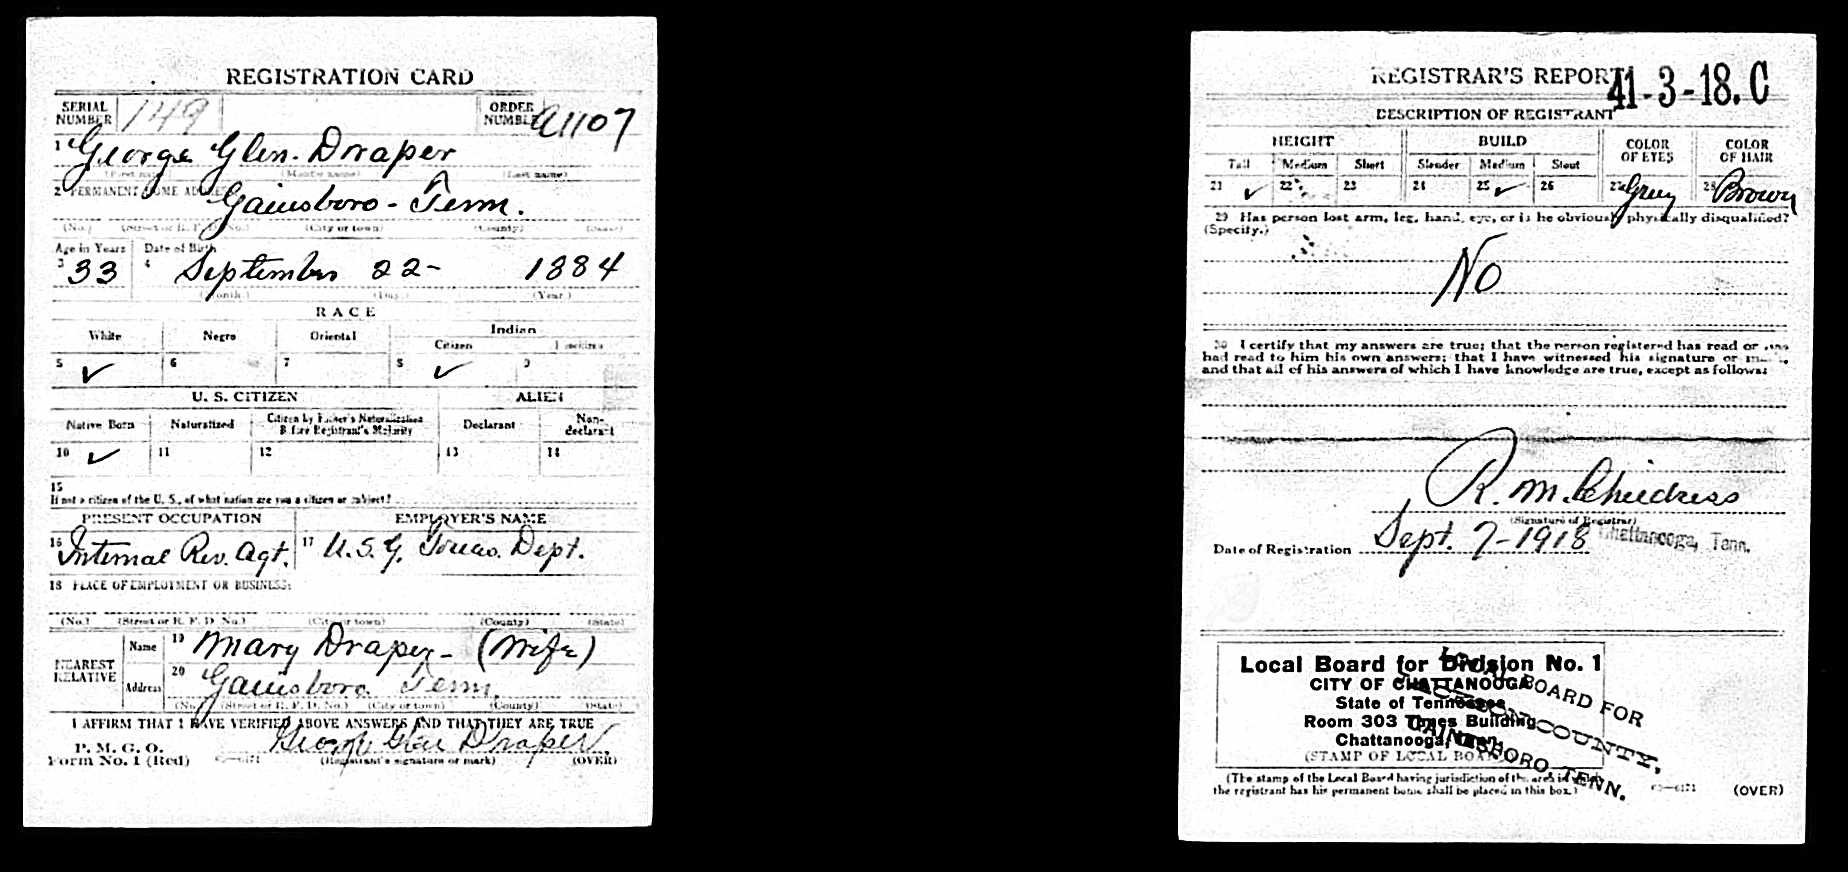 REGISTRATION CARD
SERIAL NUMBER 149 ORDER NUMBER A1107
1 George Glen Draper
(First name) (Middle name) (Last name)
2 PERMANENT HOME ADDRESS
Gainsboro - Tenn.
(No.) (Street or R. F. D. No.) (City or town) (County) (State)
Age in Years Date of Birth
3 33 4 September 22- 1884
(Month) (Day) (Year)
RACE
White Negro Oriental Indian
Citizen
5 ✓ 6 7 8 ✓ 9
U. S. CITIZEN ALIEN
Native Born Naturalized Citizen by Father's Naturalization Before Registrant's Majority Declarant Non-declarant
10 ✓ 11 12 13 14
15
If not a citizen of the U. S., of what nation are you a citizen or subject?
PRESENT OCCUPATION EMPLOYER'S NAME
16 Internal Rev. Agt. 17 U.S.G. Dept.
18 PLACE OF EMPLOYMENT OR BUSINESS:
(No.) (Street or R. F. D. No.) (City or town) (County) (State)
NEAREST RELATIVE Name 19 Mary Draper - (Wife)
Address 20 Gainsboro Tenn.
(No.) (Street or R. F. D. No.) (City or town) (County) (State)
I AFFIRM THAT I HAVE VERIFIED ABOVE ANSWERS AND THAT THEY ARE TRUE
P. M. G. O.
Form No. 1 (Red) George Glen Draper
(Registrant's signature or mark) (OVER)
REGISTRAR'S REPORT 41-3-18. C
DESCRIPTION OF REGISTRANT
HEIGHT BUILD COLOR OF EYES COLOR OF HAIR
Tall Medium Short Slender Medium Stout
21 ✓ 22 23 24 25 ✓ 26 27 Grey 28 Brown
29 Has person lost arm, leg, hand, eye, or is he obviously physically disqualified?
(Specify.)
No
30 I certify that my answers are true; that the person registered has read or
had read to him his own answers; that I have witnessed his signature or
and that all of his answers of which I have knowledge are true, except as follows:
R. M. Childress
(Signature of Registrar)
Date of Registration Sept. 7-1918 Chattanooga, Tenn.
Local Board for Division No. 1
CITY OF CHATTANOOGA
State of Tennessee
Room 303 Times Building
Chattanooga, Tenn.
(STAMP OF LOCAL BOARD)
LOCAL BOARD FOR
JACKSON COUNTY,
GAINESBORO, TENN.
(The stamp of the Local Board having jurisdiction of the area in which
the registrant has his permanent home shall be placed in this box.)
(OVER)